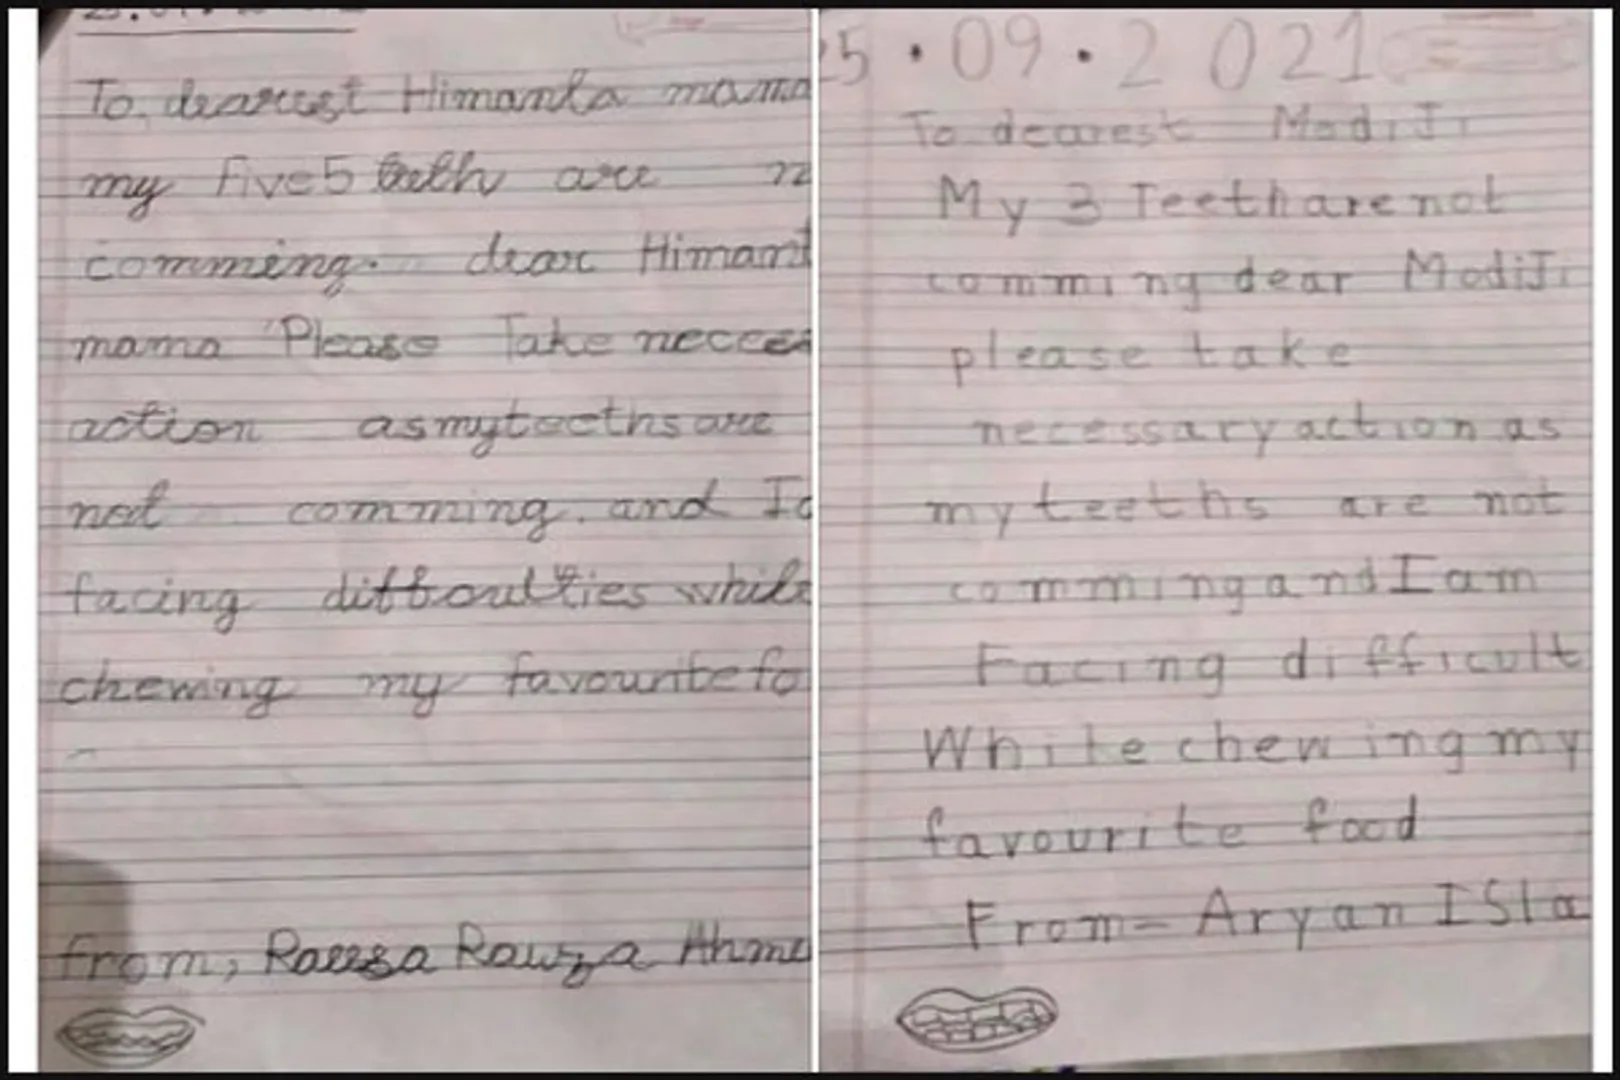 To dearest Himanta mama
my five 5 teeth are
comming. dear Himant
mama Please Take necces
action asmyteethsare
not comming. and I
facing difficulties while
chewing my favourite fo
from, Raeesa Rawza Ahme
25.09.2021
To dearest ModiJi
My 3 Teeth are not
comming dear ModiJi
please take
necessary action as
my teeths are not
comming and I am
Facing difficult
While chewing my
favourite food
From- Aryan ISla